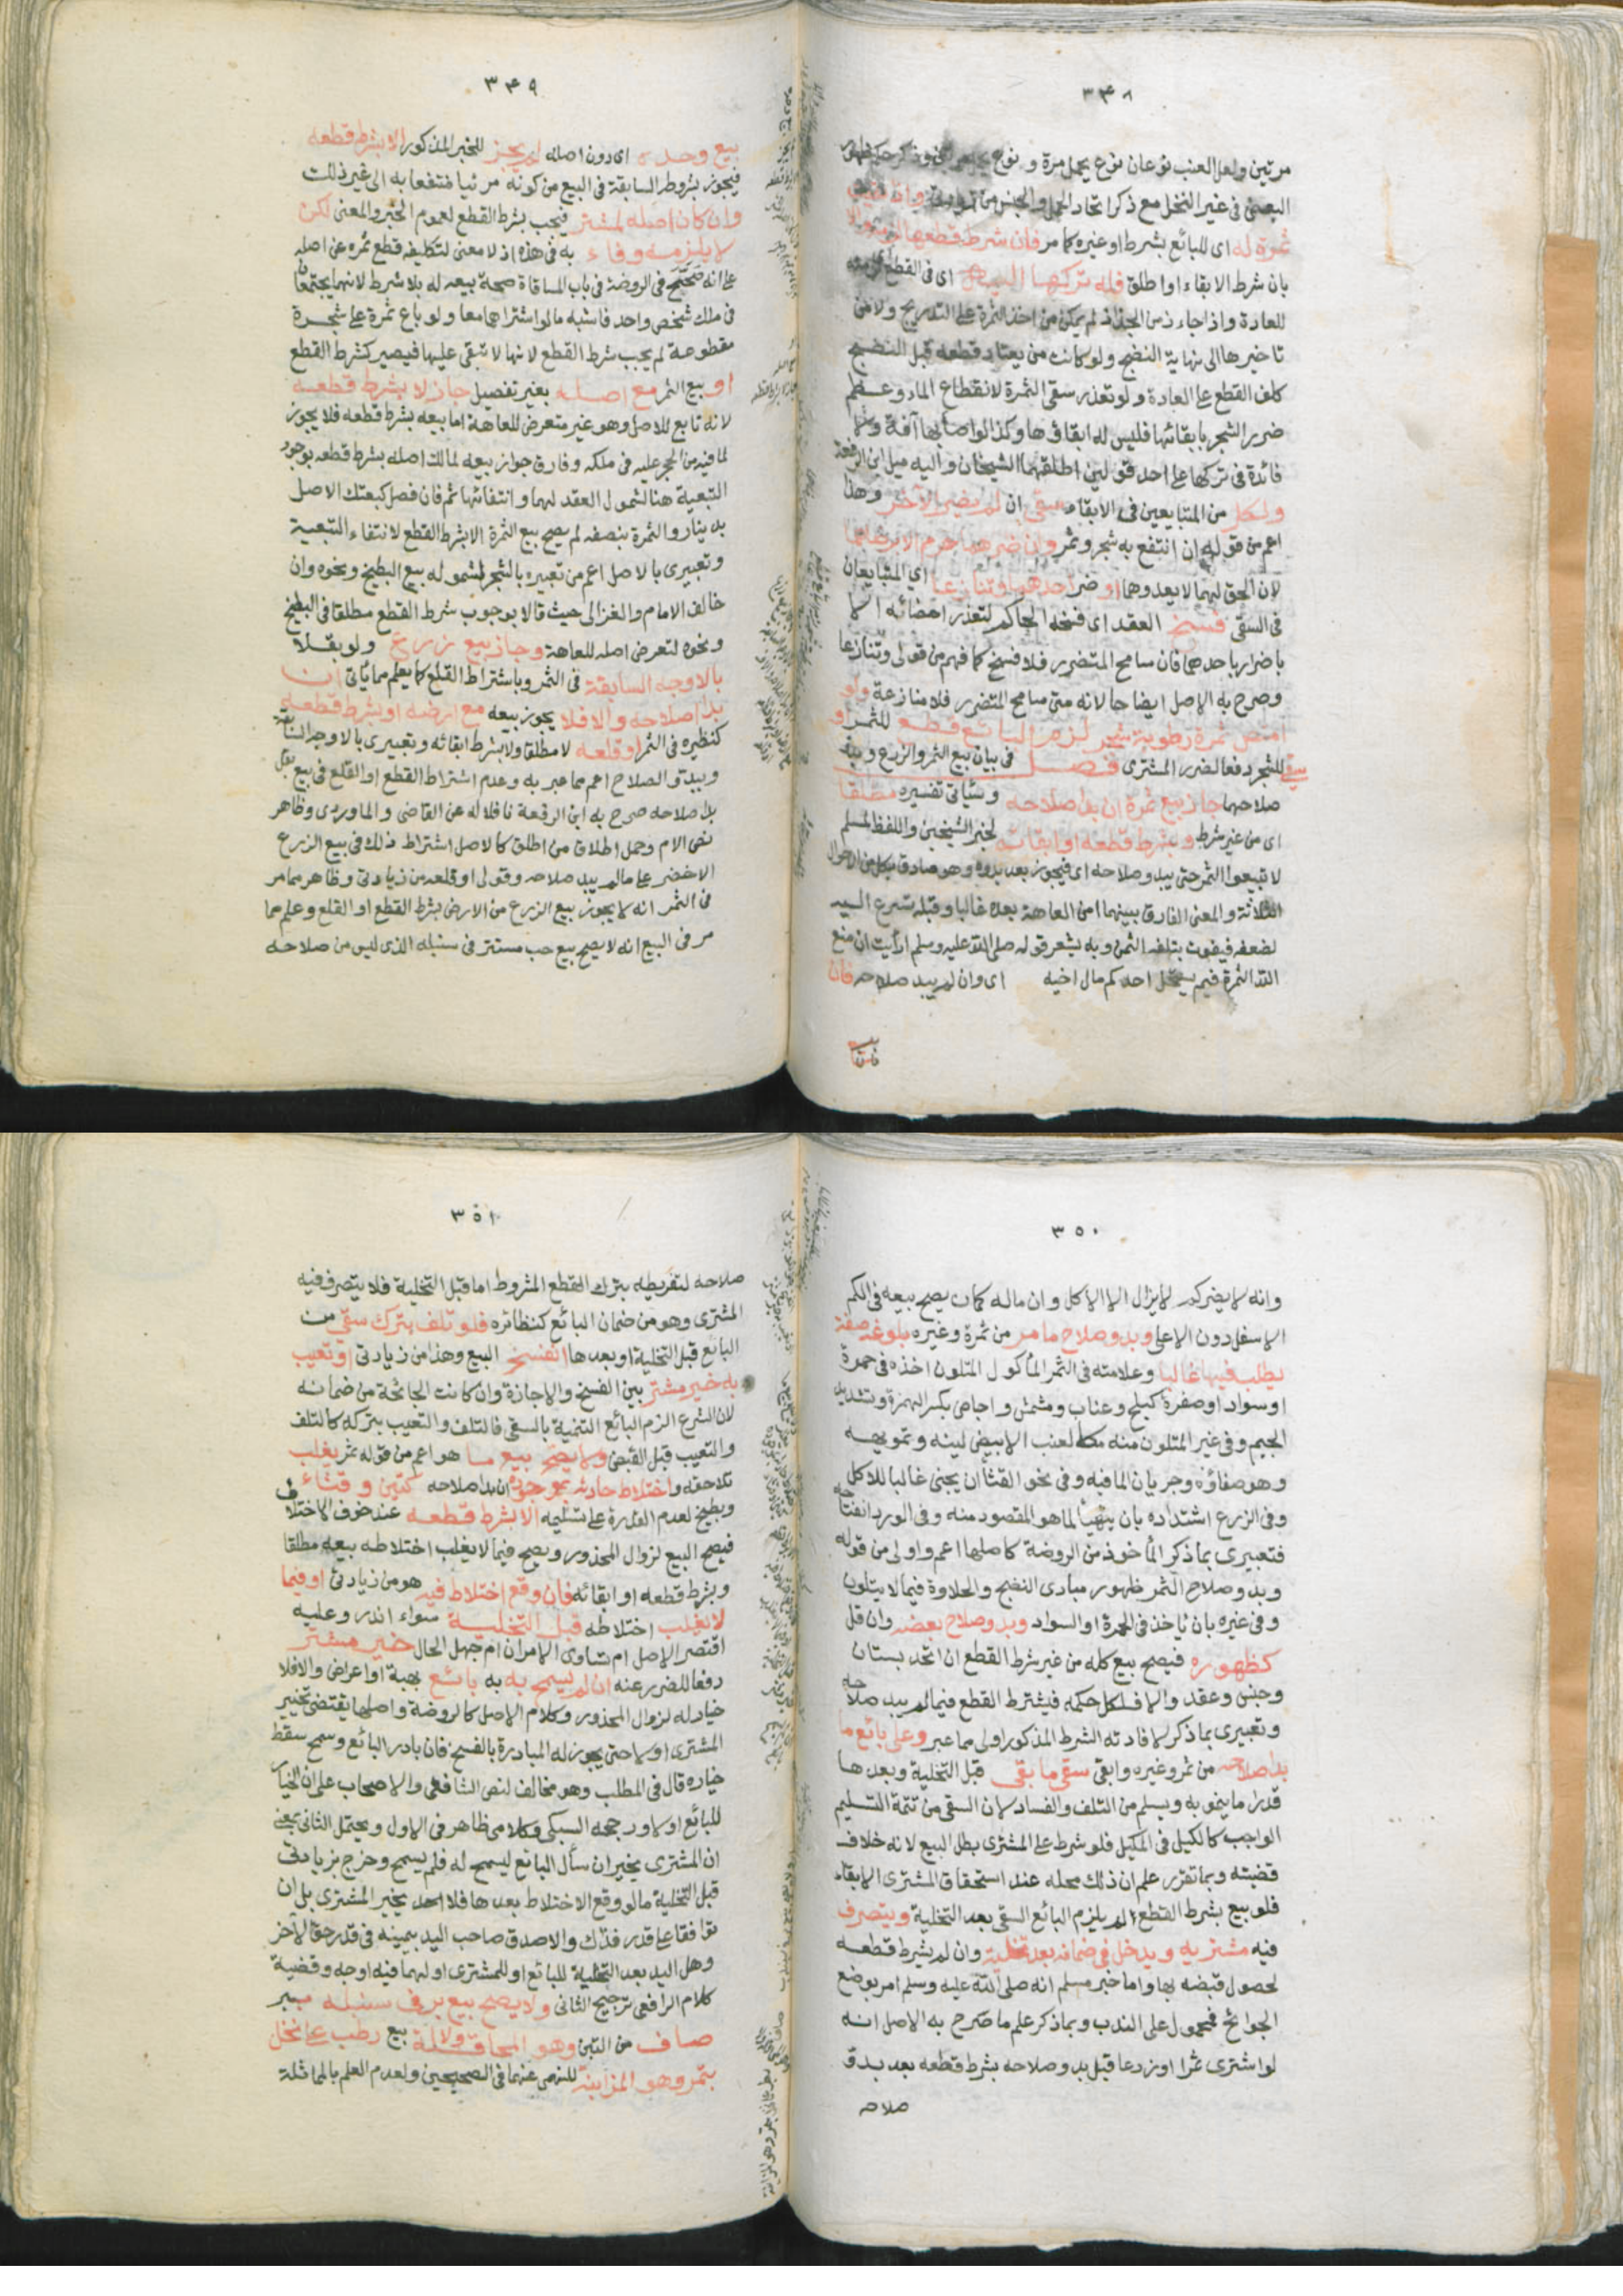 ٣٤٨
مرتين ولعل العنب نوعان نوع يحمل مرة ونوع يحمل مرتين وذكر حكم ظهور
البعض في غير النخل مع ذكر اتحاد الحمل والجنس من زيادتي وان بقيت
ثمرة له اى للبائع بشرط او غيره كما مر فان شرط قطعها لزمه والا
بان شرط الابقاء او اطلق فله تركها اليه اى في القطع
للعادة واذا جاء زمن الجذاذ لم يمكن من اخذ الثمرة على التدريج ولا من
تاخيرها الى نهاية النضج ولو كانت من يعتاد قطعه قبل النضج
كلف القطع على العادة ولو تعذر سقى الثمرة لانقطاع الماء وعظم
ضرر الشجر بابقائها فليس له ابقاؤها وكذا لو اصابها آفة ولا
فائدة في تركها على احد قولين اطلقهما الشيخان واليه ميل ابن الرفعة
ولكل من المتبايعين في الابقاء سقى ان لم يضر الآخر وهذا
اعم من قوله ان انتفع به شجر وثمر وان ضرهما حرم الا برضاهما
لان الحق لهما لا يعدوهما او ضر احدهما وتنازعا اي المتبايعان
في السقى فسخ العقد اى فسخه الحاكم لتعذر امضائه الا
باضرار باحدهما فان سامح المتضرر فلا فسخ كما فهم من قولى وتنازعا
وصرح به الاصل ايضا حالانه متى سامح المتضرر فلا منازعة ولو
امتص ثمرة رطوبة شجر لزم البائع قطع للثمر او
سقى للشجر دفعا لضرر المشترى فصل في بيان بيع الثمر والزرع وبدو
صلاحهما جاز بيع ثمرة ان بدا صلاحه وسياتى تفسيره مطلقا
اى من غير شرط وبشرط قطعه او ابقائه لخبر الشيخين واللفظ لمسلم
لا تبيعوا الثمر حتى يبدو صلاحه اى فيجوز بعد بدوه وهو صادق بكل من الاحوال
الثلاثة والمعنى الفارق بينهما امن العاهة بعده غالبا وقبله تسرع اليه
لضعفه فيفوت بتلفه الثمن وبه يشعر قوله صلى الله عليه وسلم ارأيت ان منع
الله الثمرة فبم يستحل احدكم مال اخيه اى وان لم يبد صلاحه فان
٣٤٩
بيع وحده اى دون اصله لم يجز للخبر المذكور الا بشرط قطعه
فيجوز بشروط السابقة في البيع من كونه مرئيا منتفعا به الى غير ذلك
وان كان اصله لمشتر فيجب بشرط القطع لعموم الخبر والمعنى لكن
لا يلزمه وفاء به في هذه اذ لا معنى لتكليفه قطع ثمره عن اصله
على انه صحح في الروضة في باب المساقاة صحة بيعه له بلا شرط لانهما يجتمعان
في ملك شخص واحد فاشبه ما لو اشتراهما معا ولو باع ثمرة على شجرة
مقطوعة لم يجب شرط القطع لانها لا تبقى عليها فيصير كشرط القطع
او بيع الثمر مع اصله بغير تفصيل جاز لا بشرط قطعه
لانه تابع للاصل وهو غير متعرض للعاهة اما بيعه بشرط قطعه فلا يجوز
لما فيه من الحجر عليه في ملكه وفارق جواز بيعه لمالك اصله بشرط قطعه بوجود
التبعية هنا لشمول العقد لهما وانتفائها ثم فان فصل كبعتك الاصل
بدينار والثمرة بنصفه لم يصح بيع الثمرة الا بشرط القطع لانتفاء التبعية
وتعبيرى بالاصل اعم من تعبيره بالشجر لشموله بيع البطيخ ونحوه وان
خالف الامام والغزالى حيث قالا بوجوب شرط القطع مطلقا في البطيخ
ونحوه لتعرض اصله للعاهة وجاز بيع زرع ولو بقلا
بالاوجه السابقة في الثمر وباشتراط القلع كما يعلم مما ياتى ان
بدا صلاحه والا فلا يجوز بيعه مع ارضه او بشرط قطعه
كنظيره في الثمر او قلعه لا مطلقا ولا بشرط ابقائه وتعبيرى بالاوجه السابقة
وببدو الصلاح اعم مما عبر به وعدم اشتراط القطع او القلع في بيع بقل
بدا صلاحه صرح به ابن الرفعة ناقلا له عن القاضى والماوردى وظاهر
نص الام وحمل اطلاق من اطلق كالاصل اشتراط ذلك في بيع الزرع
الاخضر على ما لم يبد صلاحه وقولى او قلعه من زيادتى وظاهر مما مر
في الثمر انه لا يجوز بيع الزرع من الارض بشرط القطع او القلع وعلم مما
مر في البيع انه لا يصح بيع حب مستتر في سنبله الذى ليس من صلاحه
٣٥٠
وانه لا يضر كم لا يزال الا لاكل وان ماله كمان يصح بيعه في الكم
الاسفل دون الاعلى وبدو صلاح ما مر من ثمرة وغيره بلوغه صفة
يطلب فيها غالبا وعلامته في الثمر المأكول المتلون اخذه في حمرة
او سواد او صفرة كبلح وعناب ومشمش واجاص بكسر الهمزة وتشديد
الجيم وفى غير المتلون منه كالعنب الابيض لينه وتمويهه
وهو صفاؤه وجريان الماء فيه وفى نحو القثاء ان يجنى غالبا للاكل
وفى الزرع اشتداده بان يتهيأ لما هو المقصود منه وفى الورد انفتاحه
فتعبيرى بما ذكر المأخوذ من الروضة كاصلها اعم واولى من قوله
وبدو صلاح الثمر ظهور مبادى النضج والحلاوة فيما لا يتلون
وفى غيره بان ياخذ في الحمرة او السواد وبدو صلاح بعضه وان قل
كظهوره فيصح بيع كله من غير شرط القطع ان اتحد بستان
وجنس وعقد والا فلكل حكمه فيشترط القطع فيما لم يبد صلاحه
وتعبيرى بما ذكر لافادته الشرط المذكور اولى مما عبر وعلى بائع ما
بدا صلاحه من ثمر وغيره وابقى سقى ما بقى قبل التخلية وبعدها
قدر ما ينمو به ويسلم من التلف والفساد لان السقى من تتمة التسليم
الواجب كالكيل في المكيل فلو شرط على المشترى بطل البيع لانه خلاف
قضيته وبما تقرر علم ان ذلك محله عند استحقاق المشترى الابقاء
فلو بيع بشرط القطع لم يلزم البائع السقى بعد التخلية ويتصرف
فيه مشتريه ويدخل في ضمانه بعد تخلية وان لم يشرط قطعه
لحصول قبضه بها واما خبر مسلم انه صلى الله عليه وسلم امر بوضع
الجوائح فمحمول على الندب وبما ذكر علم ما صرح به الاصل انه
لو اشترى ثمرا او زرعا قبل بدو صلاحه بشرط قطعه بعد بدو
صلاحه
٣٥١
صلاحه لتفريطه بترك القطع المشروط اما قبل التخلية فلا يتصرف فيه
المشترى وهو من ضمان البائع كنظائره فلو تلف بترك سقى من
البائع قبل التخلية او بعدها انفسخ البيع وهذا من زيادتى او تعيب
به خير مشتر بين الفسخ والاجازة وان كانت الجائحة من ضمانه
لان الشرع الزم البائع التنمية بالسقى فالتلف والتعيب بتركه كالتلف
والتعيب قبل القبض ولا يصح بيع ما هو اعم من قوله ثمر يغلب
تلاحقه واختلاط حادثه بموجوده ان بدا صلاحه كتين وقثاء
وبطيخ لعدم القدرة على تسليمه الا بشرط قطعه عند خوف الاختلاف
فيصح البيع لزوال المحذور ويصح فيما لا يغلب اختلاطه بيعه مطلقا
وبشرط قطعه او ابقائه فان وقع اختلاط فيه هو من زيادتى او فيما
لا يغلب اختلاطه قبل التخلية سواء اندر وعليه
اقتصر الاصل ام تساوى الامران ام جهل الحال خير مشتر
دفعا للضرر عنه ان لم يسمح به به بائع بهبة او اعراض والا فلا
خيار له لزوال المحذور وكلام الاصل كالروضة واصلها يقتضى تخيير
المشترى اولا حتى يجوز له المبادرة بالفسخ فان بادر البائع وسمح سقط
خياره قال في المطلب وهو مخالف لنص الشافعى والاصحاب على ان الخيار
للبائع اولا ورجحه السبكى وكلامى ظاهر في الاول ويحتمل الثانى بمعنى
ان المشترى يخير ان سأل البائع ليسمح له فلم يسمح وخرج بزيادتى
قبل التخلية ما لو وقع الاختلاط بعدها فلا يخير المشترى بل ان
توافقا على قدر فذاك والا صدق صاحب اليد بيمينه في قدر حق الآخر
وهل اليد بعد التخلية للبائع او للمشترى او لهما فيه اوجه وقضية
كلام الرافعى ترجيح الثانى ولا يصح بيع بر في سنبله ببر
صاف من التبن وهو المحاقلة ولا بيع رطب على نخل
بتمر وهو المزابنة للنهى عنهما في الصحيحين ولعدم العلم بالمماثلة